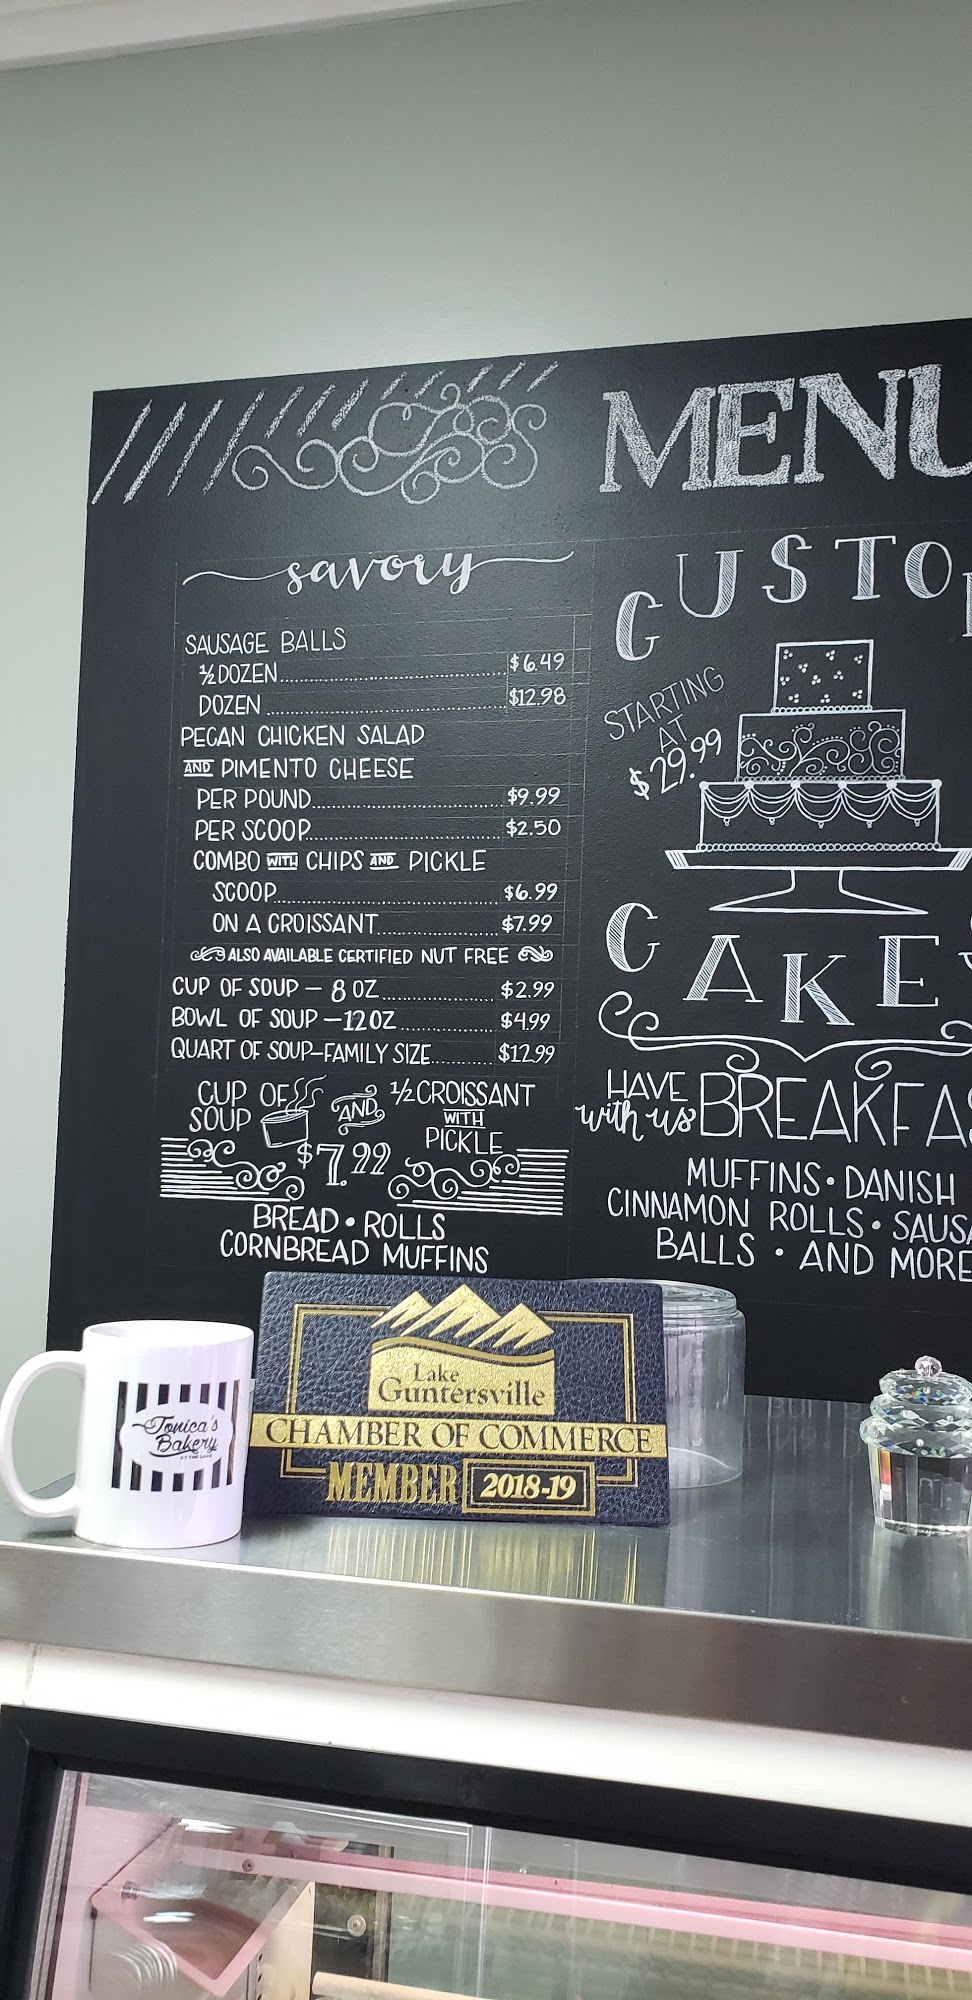 MENU
savory
SAUSAGE BALLS
½ DOZEN $6.49
DOZEN $12.98
PECAN CHICKEN SALAD
AND PIMENTO CHEESE
PER POUND $9.99
PER SCOOP $2.50
COMBO WITH CHIPS AND PICKLE
SCOOP $6.99
ON A CROISSANT $7.99
ALSO AVAILABLE CERTIFIED NUT FREE
CUP OF SOUP — 8 OZ $2.99
BOWL OF SOUP — 12 OZ $4.99
QUART OF SOUP–FAMILY SIZE $12.99
CUP OF SOUP AND ½ CROISSANT
WITH
PICKLE
$7.99
BREAD • ROLLS
CORNBREAD MUFFINS
CUSTO
STARTING
AT
$29.99
CAKE
HAVE
with us BREAKFA
MUFFINS • DANISH
CINNAMON ROLLS • SAUSA
BALLS • AND MORE
Tonica's
Bakery
AT THE LAKE
Lake
Guntersville
CHAMBER OF COMMERCE
MEMBER 2018-19